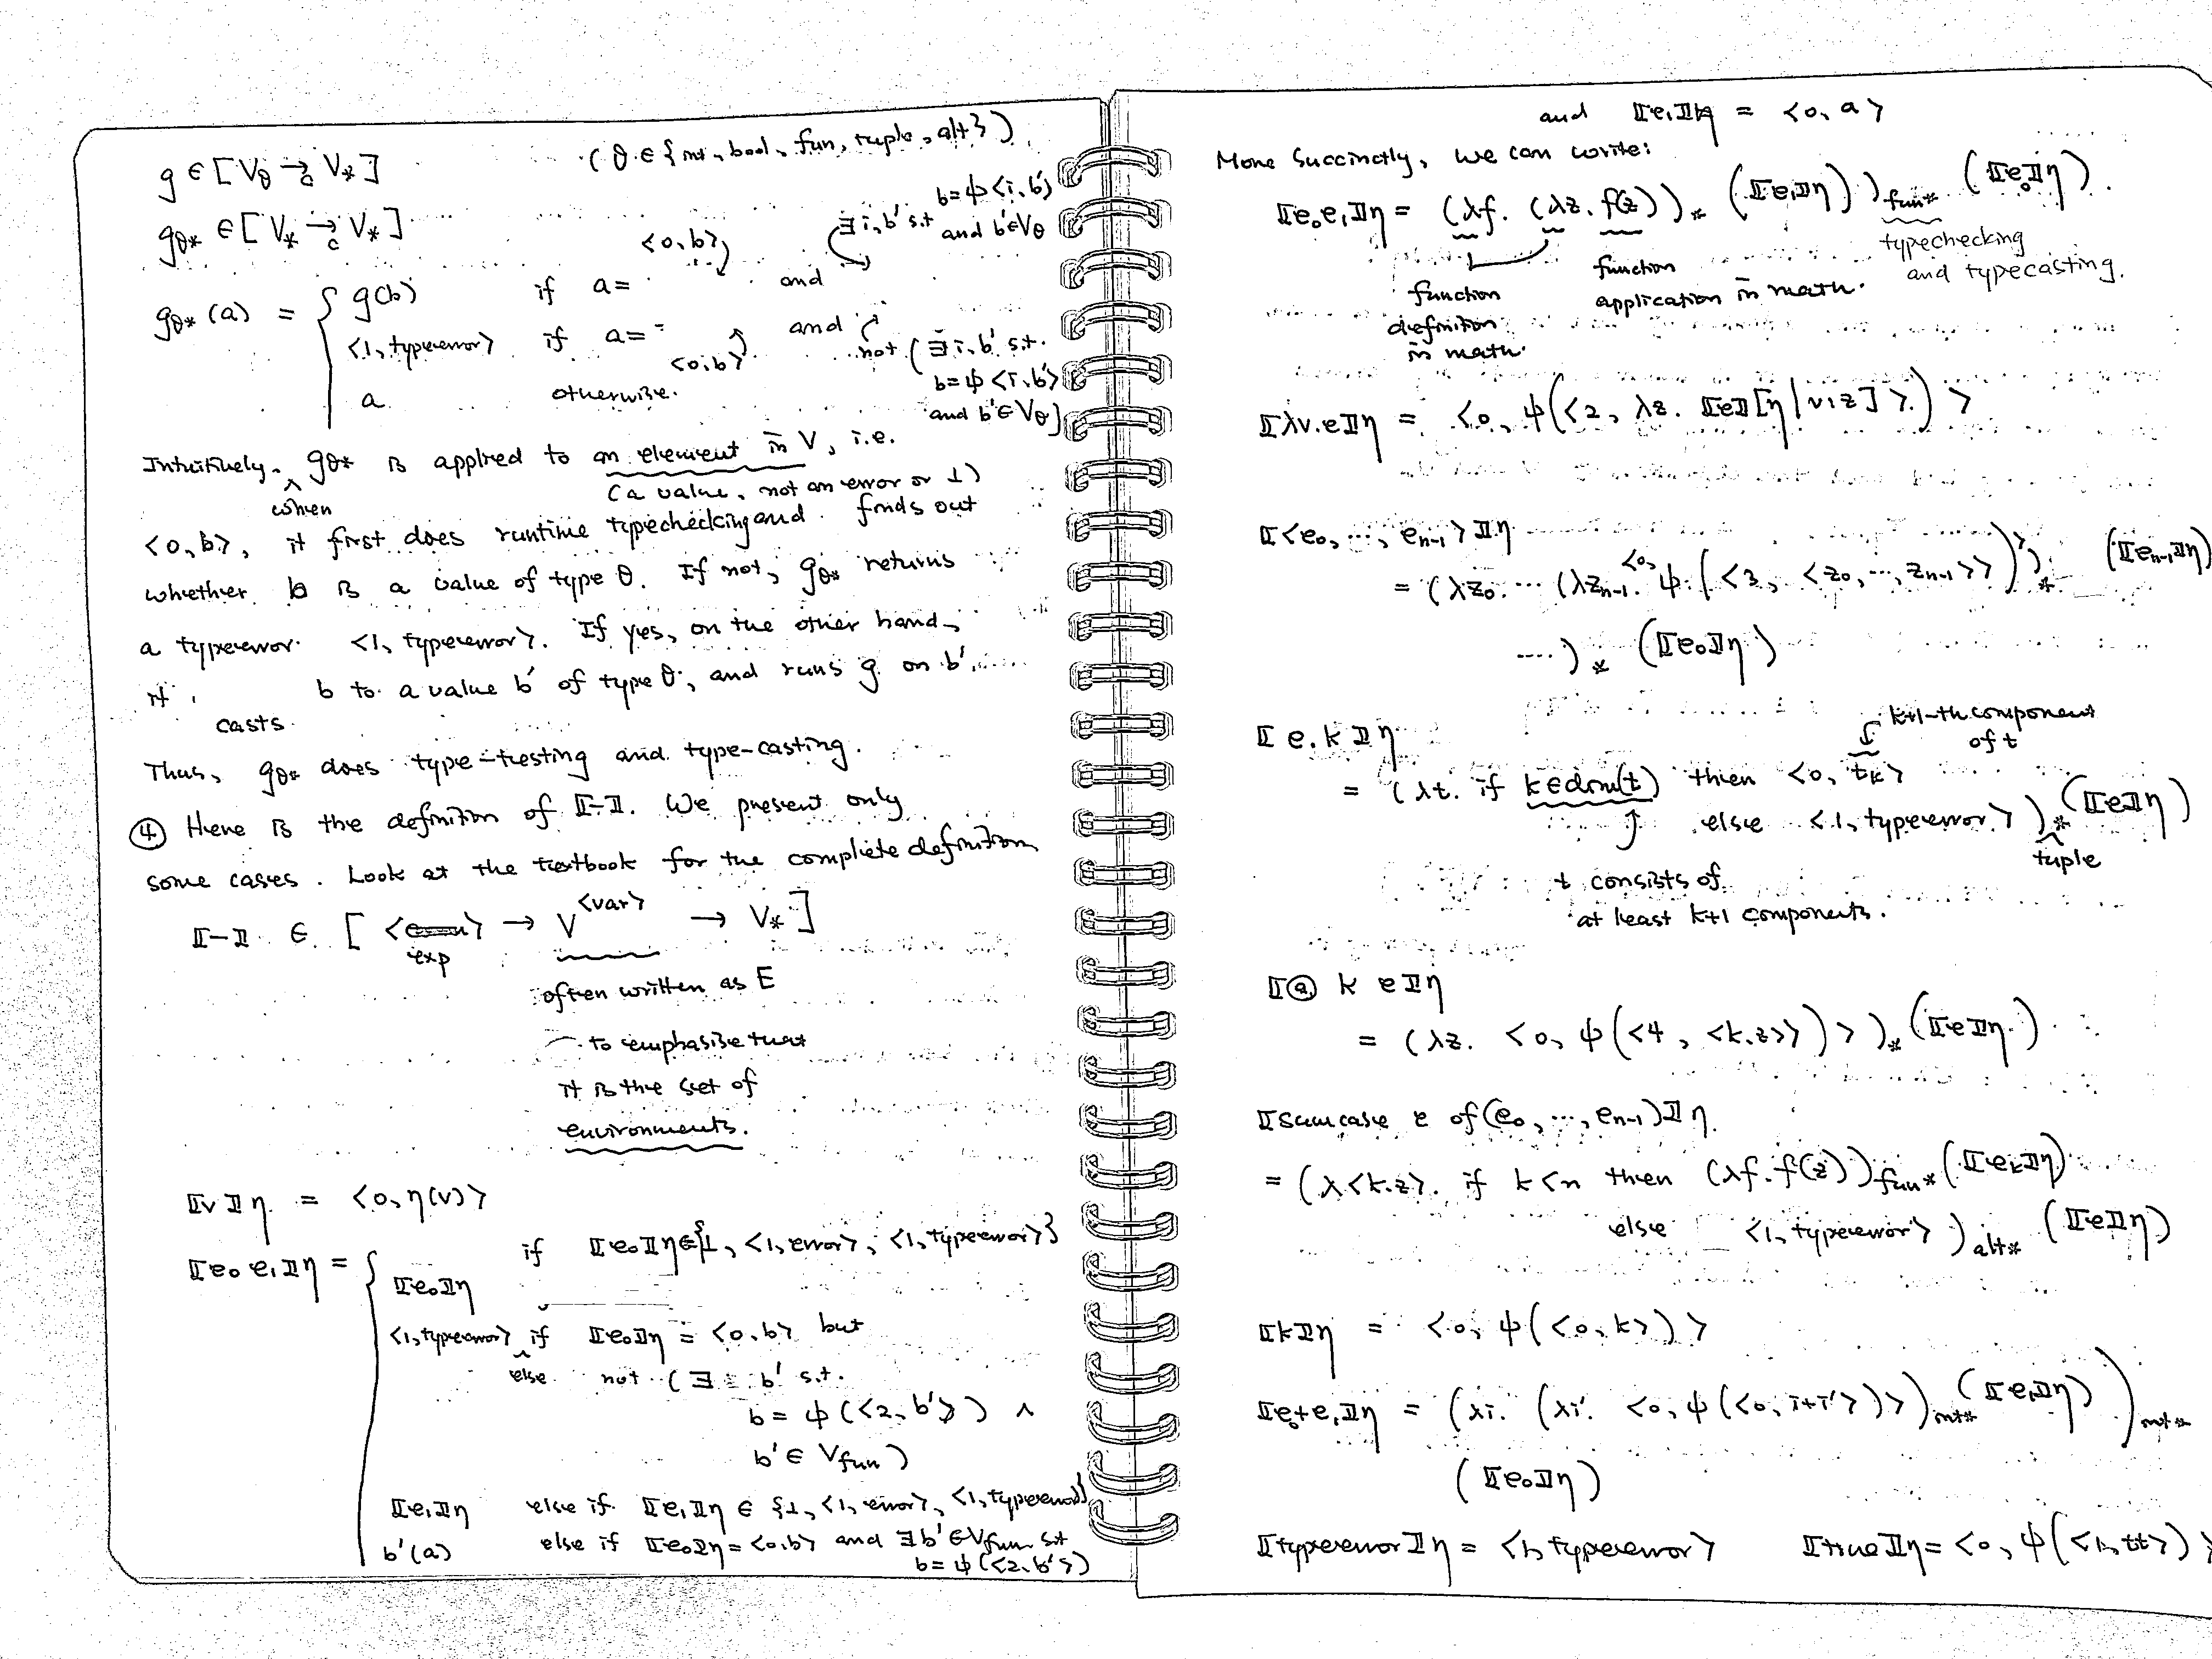 g ∈ [V_θ →_c V_*]   (θ ∈ {int, bool, fun, tuple, alt})
g_θ* ∈ [V_* →_c V_*]
g_θ*(a) = { g(b)   if a = <0,b> and ∃i,b' s.t b=ψ<i,b'> and b'∈V_θ
<1,typeerror>   if a = <0,b> and not (∃i,b' s.t. b=ψ<i,b'> and b'∈V_θ]
a   otherwise.
Intuitively, when g_θ* is applied to an element in V, i.e.
(a value, not an error or ⊥)
<0,b>, it first does runtime typechecking and finds out
whether b is a value of type θ. If not, g_θ* returns
a typeerror <1,typeerror>. If yes, on the other hand,
it casts b to a value b' of type θ, and runs g on b'.
Thus, g_θ* does type-testing and type-casting.
④ Here is the definition of ⟦-⟧. We present only
some cases. Look at the textbook for the complete definition
⟦-⟧ ∈ [ <exp> → V^<var> → V_* ]
often written as E
to emphasise that
it is the set of
environments.
⟦v⟧η = <0, η(v)>
⟦e₀ e₁⟧η = { ⟦e₀⟧η   if ⟦e₀⟧η ∈ {⊥, <1,error>, <1,typeerror>}
<1,typeerror> else if ⟦e₀⟧η = <0,b> but
not (∃ b' s.t.
b = ψ(<2,b'>) ∧
b' ∈ V_fun)
⟦e₁⟧η   else if ⟦e₁⟧η ∈ {⊥, <1,error>, <1,typeerror>}
b'(a)   else if ⟦e₀⟧η = <0,b> and ∃b'∈V_fun s.t
b = ψ(<2,b'>)
and ⟦e₁⟧η = <0,a>
More succinctly, we can write:
⟦e₀e₁⟧η = (λf. (λz. f(z))_* (⟦e₁⟧η))_fun* (⟦e₀⟧η).
function definition in math.
function application in math.
typechecking and typecasting.
⟦λv.e⟧η = <0, ψ(<2, λz. ⟦e⟧[η|v:z]>)>
⟦<e₀, ..., e_{n-1}>⟧η
= (λz₀. ... (λz_{n-1}. <0, ψ(<3, <z₀, ..., z_{n-1}>>)>)_* (⟦e_{n-1}⟧η)
....)_* (⟦e₀⟧η)
⟦e.k⟧η
k+1-th component of t
= (λt. if k∈dom(t) then <0, t_k>
else <1,typeerror>)_tuple* (⟦e⟧η)
t consists of
at least k+1 components.
⟦@ k e⟧η
= (λz. <0, ψ(<4, <k,z>>)>)_* (⟦e⟧η)
⟦sumcase e of (e₀, ..., e_{n-1})⟧η
= (λ<k,z>. if k<n then (λf. f(z))_fun* (⟦e_k⟧η)
else <1,typeerror>)_alt* (⟦e⟧η)
⟦k⟧η = <0, ψ(<0,k>)>
⟦e₀+e₁⟧η = (λi. (λi'. <0, ψ(<0, i+i'>)>)_int* (⟦e₁⟧η))_int*
(⟦e₀⟧η)
⟦typeerror⟧η = <1,typeerror>   ⟦true⟧η = <0, ψ(<1,tt>)>